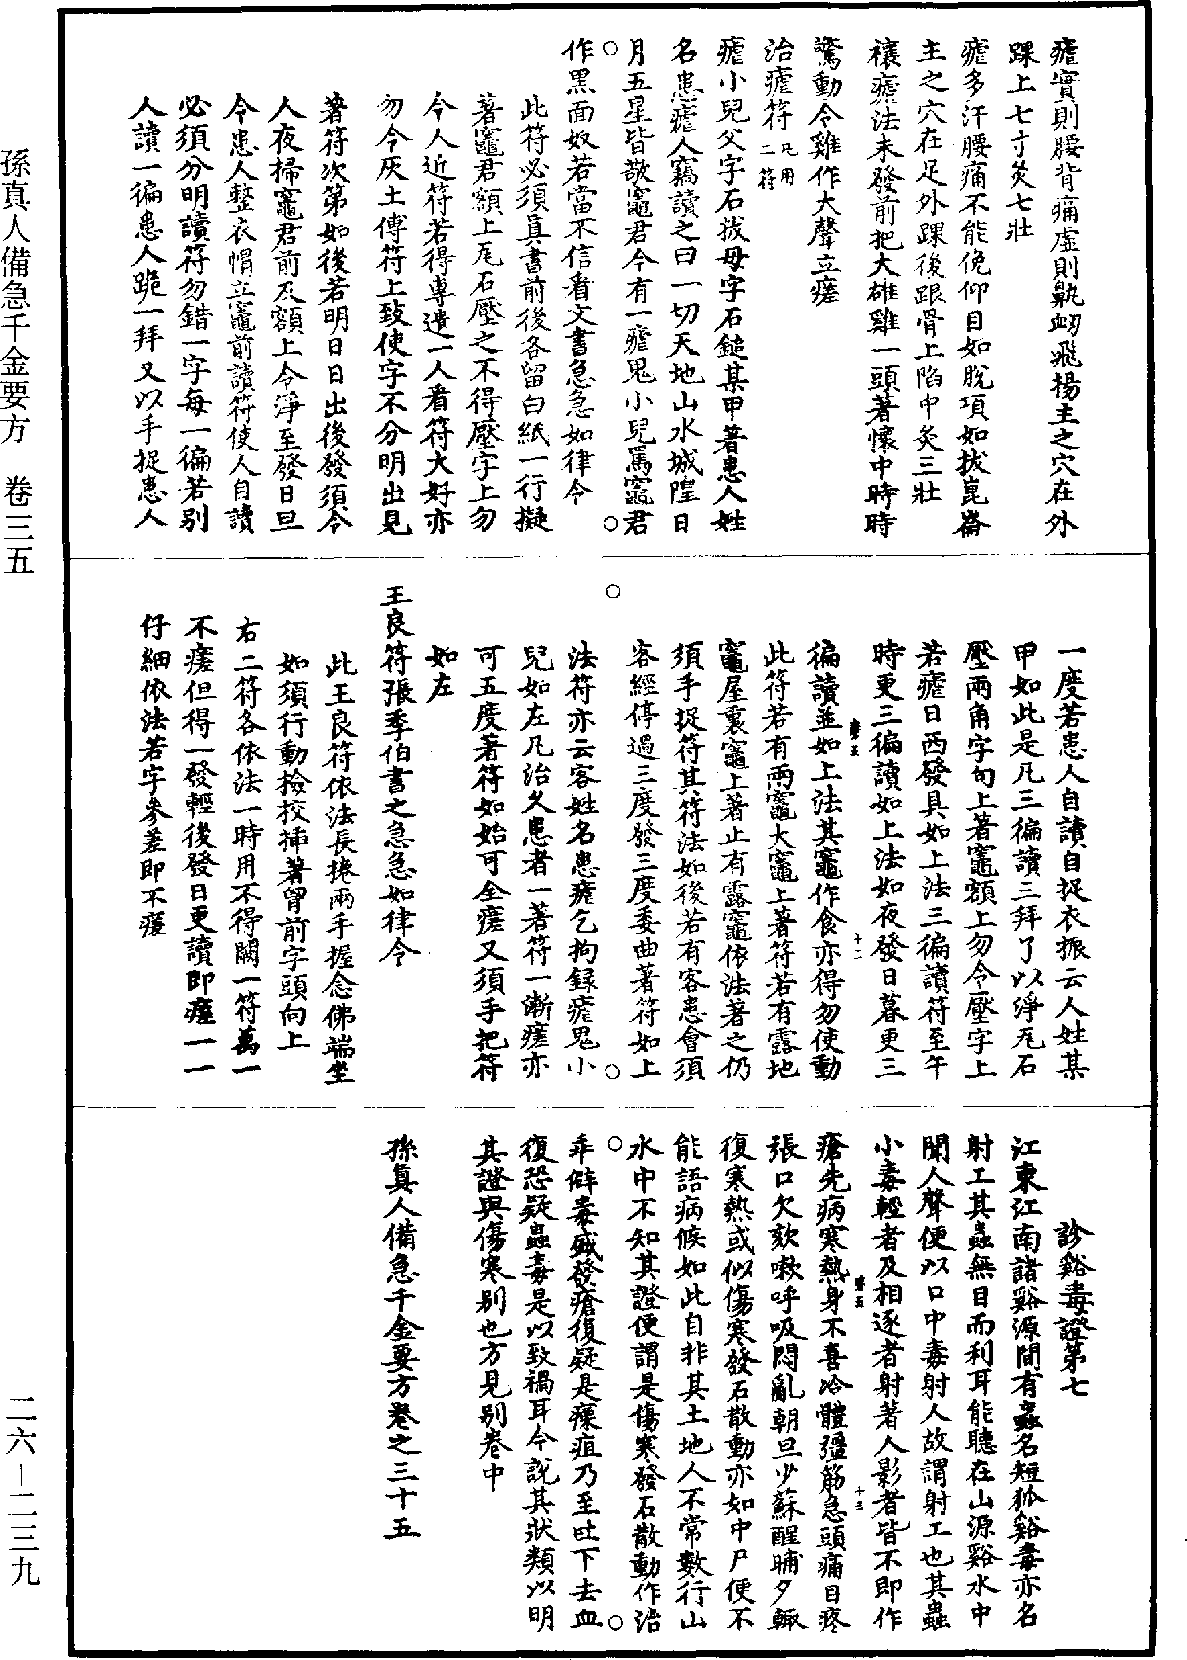 瘧實則腰背痛虛則鼽衂飛揚主之穴在外
踝上七寸灸七壯
瘧多汗腰痛不能俛仰目如脫項如拔崑崙
主之穴在足外踝後跟骨上陷中灸三壯
禳瘧法未發前把大雄雞一頭著懷中時時
驚動令雞作大聲立瘥
治瘧符凡用二符
瘧小兒父字石拔母字石鎚某甲著患人姓
名患瘧人竊讀之曰一切天地山水城隍日
月五星皆敬竈君今有一瘧鬼小兒罵竈君
作黑面奴若當不信看文書急急如律令
此符必須真書前後各留白紙一行擬
著竈君額上瓦石壓之不得壓字上勿
令人近符若得專遣一人看符大好亦
勿令灰土傅符上致使字不分明出見
著符次第如後若明日日出後發須令
人夜掃竈君前及額上令淨至發日旦
令患人整衣帽立竈前讀符使人自讀
必須分明讀符勿錯一字每一徧若別
人讀一徧患人跪一拜又以手捉患人
一度若患人自讀自捉衣振云人姓某
甲如此是凡三徧讀三拜了以淨瓦石
壓兩角字句上著竈額上勿令壓字上
若瘧日西發具如上法三徧讀符至午
時更三徧讀如上法如夜發日暮更三
徧讀並如上法其竈作食亦得勿使動
此符若有兩竈大竈上著符若有露地
竈屋裏竈上著止有露竈依法著之仍
須手捉符其符法如後若有客患會須
客經停過三度發三度委曲著符如上
法符亦云客姓名患瘧乞拘錄瘧鬼小
兒如左凡治久患者一著符一漸瘥亦
可五度著符如始可全瘥又須手把符
如左
王良符張季伯書之急急如律令
此王良符依法長捲兩手握念佛端坐
如須行動檢挍插著胷前字頭向上
右二符各依法一時用不得闕一符萬一
不瘥但得一發輕後發日更讀即瘥一一
仔細依法若字參差即不瘥
診谿毒證第七
江東江南諸谿源間有蟲名短狐谿毒亦名
射工其蟲無目而利耳能聽在山源谿水中
聞人聲便以口中毒射人故謂射工也其蟲
小毒輕者及相逐者射著人影者皆不即作
瘡先病寒熱身不喜冷體彊筋急頭痛目疼
張口欠欬嗽呼吸悶亂朝旦少蘇醒晡夕輒
復寒熱或似傷寒發石散動亦如中尸便不
能語病候如此自非其土地人不常數行山
水中不知其證便謂是傷寒發石散動作治
乖僻毒盛發瘡復疑是瘭疽乃至吐下去血
復恐疑蟲毒是以致禍耳今說其狀類以明
其證與傷寒別也方見別卷中
孫真人備急千金要方卷之三十五
孫真人備急千金要方 卷三五
二六—二三九